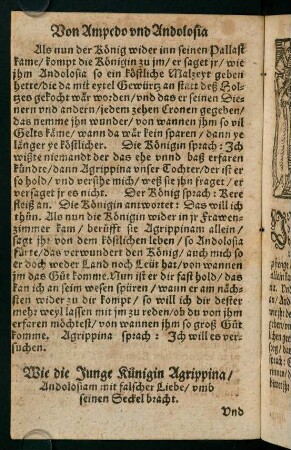 Von Ampedo vnd Andolosia
Als nun der König wider inn seinen Pallast
kame/ kompt die Königin zu jm/ er saget jr/ wie
jhm Andolosia so ein köstliche Malzeyt geben
hette/ die da mit eytel Gewürtz an statt deß Hol-
tzes gekocht wär worden/ vnd das er seinen Die-
nern vnd andern/ jedem zehen Cronen gegeben/
das nemme jhn wunder/ von wannen jhm so vil
Gelts käme/ wann da wär kein sparen/ dann ye
länger ye köstlicher. Die Königin sprach: Ich
wißte niemandt der das ehe vnnd baß erfaren
kündte/ dann Agrippina vnser Tochter/ der ist er
so hold/ vnd versihe mich/ weß sie jhn fraget/ er
versaget jr es nicht. Der König sprach: Kere
fleiß an. Die Königin antwortet: Das will ich
thůn. Als nun die Königin wider in jr Frawen-
zimmer kam/ berüfft sie Agrippinam allein/
sagt jhr von dem köstlichen leben/ so Andolosia
fürte/ das verwundert den König/ auch mich so
er doch weder Land noch Leüt hat/ von wannen
jm das Gůt komme. Nun ist er dir fast hold/ das
kan ich an seim wesen spüren/ wann er am näch-
sten wider zu dir kompt/ so will ich dir dester
mehr weyl lassen mit jm zu reden/ ob du von jhm
erfaren möchtest/ von wannen jhm so groß Gůt
komme. Agrippina sprach: Ich will es ver-
suchen.
Wie die Junge Künigin Agrippina/
Andolosiam mit falscher Liebe/ vmb
seinen Seckel bracht.
Vnd